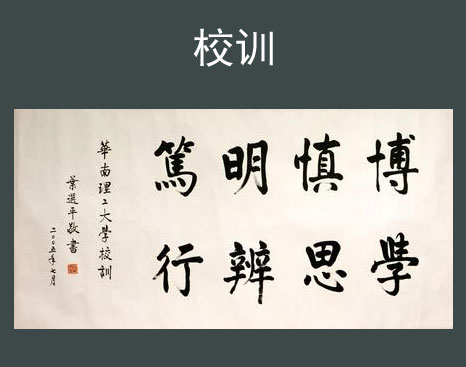 校训
博學
慎思
明辨
篤行
華南理工大學校訓
葉選平敬書
二〇〇五年七月